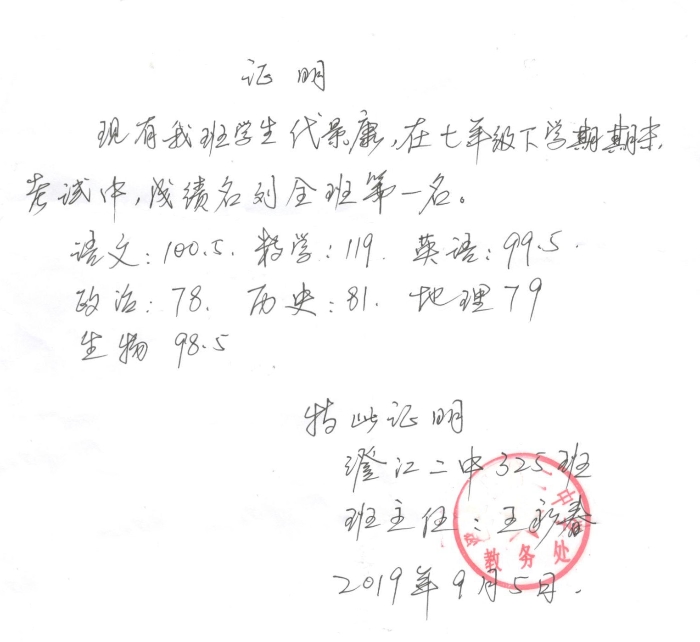 证明
现有我班学生代景康,在七年级下学期期末
考试中,成绩名列全班第一名。
语文:100.5. 数学:119. 英语:99.5.
政治:78. 历史:81. 地理79
生物 98.5
特此证明
澄江二中325班
班主任:王永春
2019年9月5日.
教务处